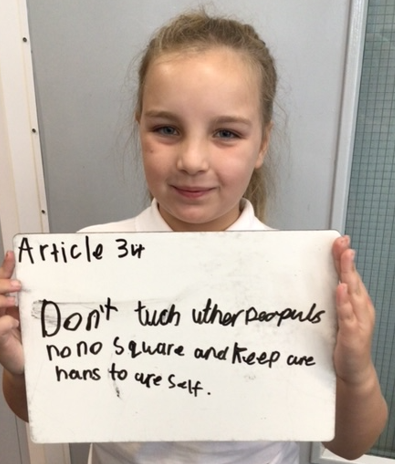 Article 34
Don't tuch uther peopuls
no no square and keep are
hans to are self.